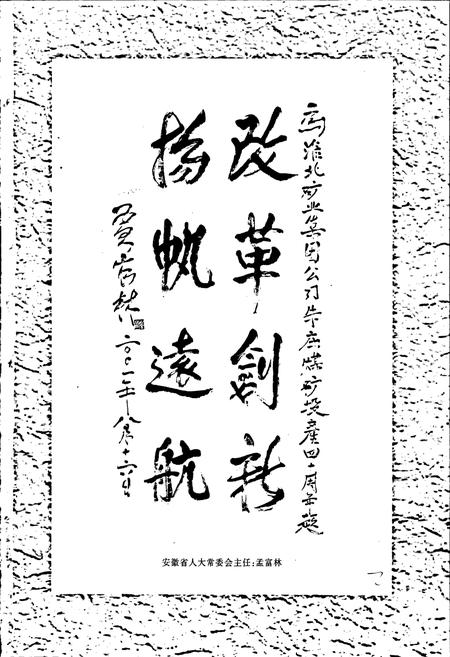 为淮北矿业集团公司朱庄煤矿投產四十周年题
改革創新
揚帆遠航
孟富林
二〇〇一年八月十六日
安徽省人大常委会主任:孟富林